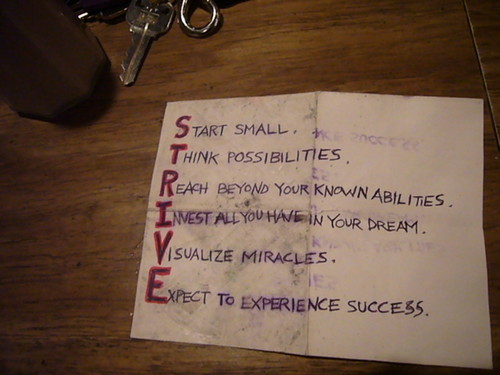 START SMALL.
THINK POSSIBILITIES.
REACH BEYOND YOUR KNOWN ABILITIES.
INVEST ALL YOU HAVE IN YOUR DREAM.
VISUALIZE MIRACLES.
EXPECT TO EXPERIENCE SUCCESS.